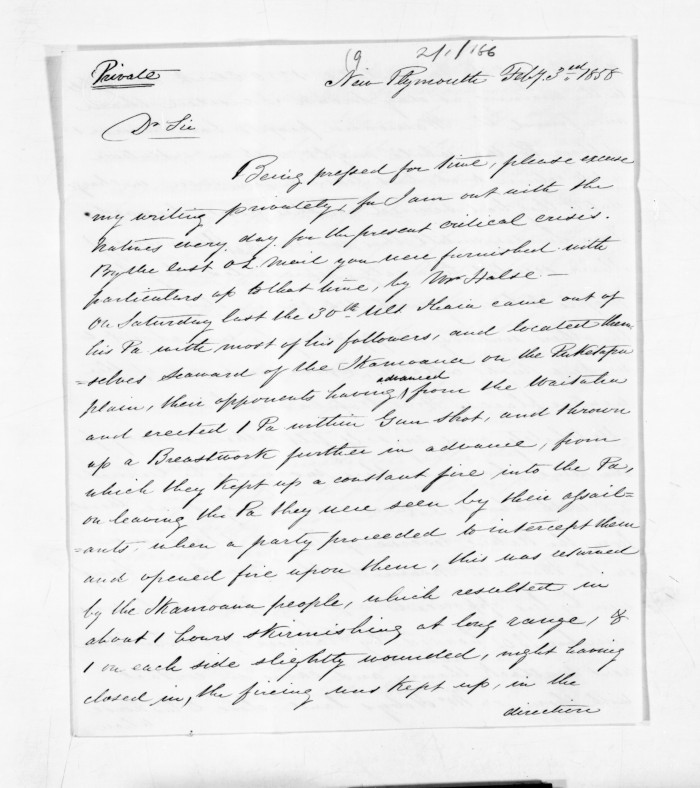 (9
2/1/166
Private
New Plymouth Feby. 3rd 1858
Dr Sir
Being pressed for time, please excuse
my writing privately, for I am out with the
Natives every day for the present critical crisis.
By the last O.L. Mail you were furnished with
particulars up to that time, by Mr Halse —
On Saturday last the 30th ult. Ihaia came out of
his Pa with most of his followers, and located them
=selves seaward of the Ikamoana on the Puketapu
plain, their opponents having advanced from the Waitaha
and erected 1 Pa within Gun shot, and thrown
up a Breastwork further in advance, from
which they kept up a constant fire into the Pa,
on leaving the Pa they were seen by their assail=
=ants, when a party proceeded to intercept them
and opened fire upon them, this was returned
by the Ikamoana people, which resulted in
about 1 hours skirmishing at long range, &
1 on each side slightly wounded, night having
closed in, the fireing was kept up, in the
direction